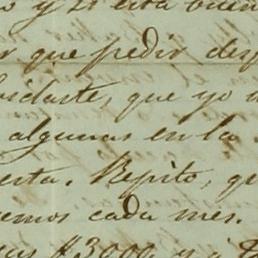 y si está buen
que pedir des
vidarte, que yo
algunas en la
esta. Repito, qu
emos cada mes.
$3000 y á